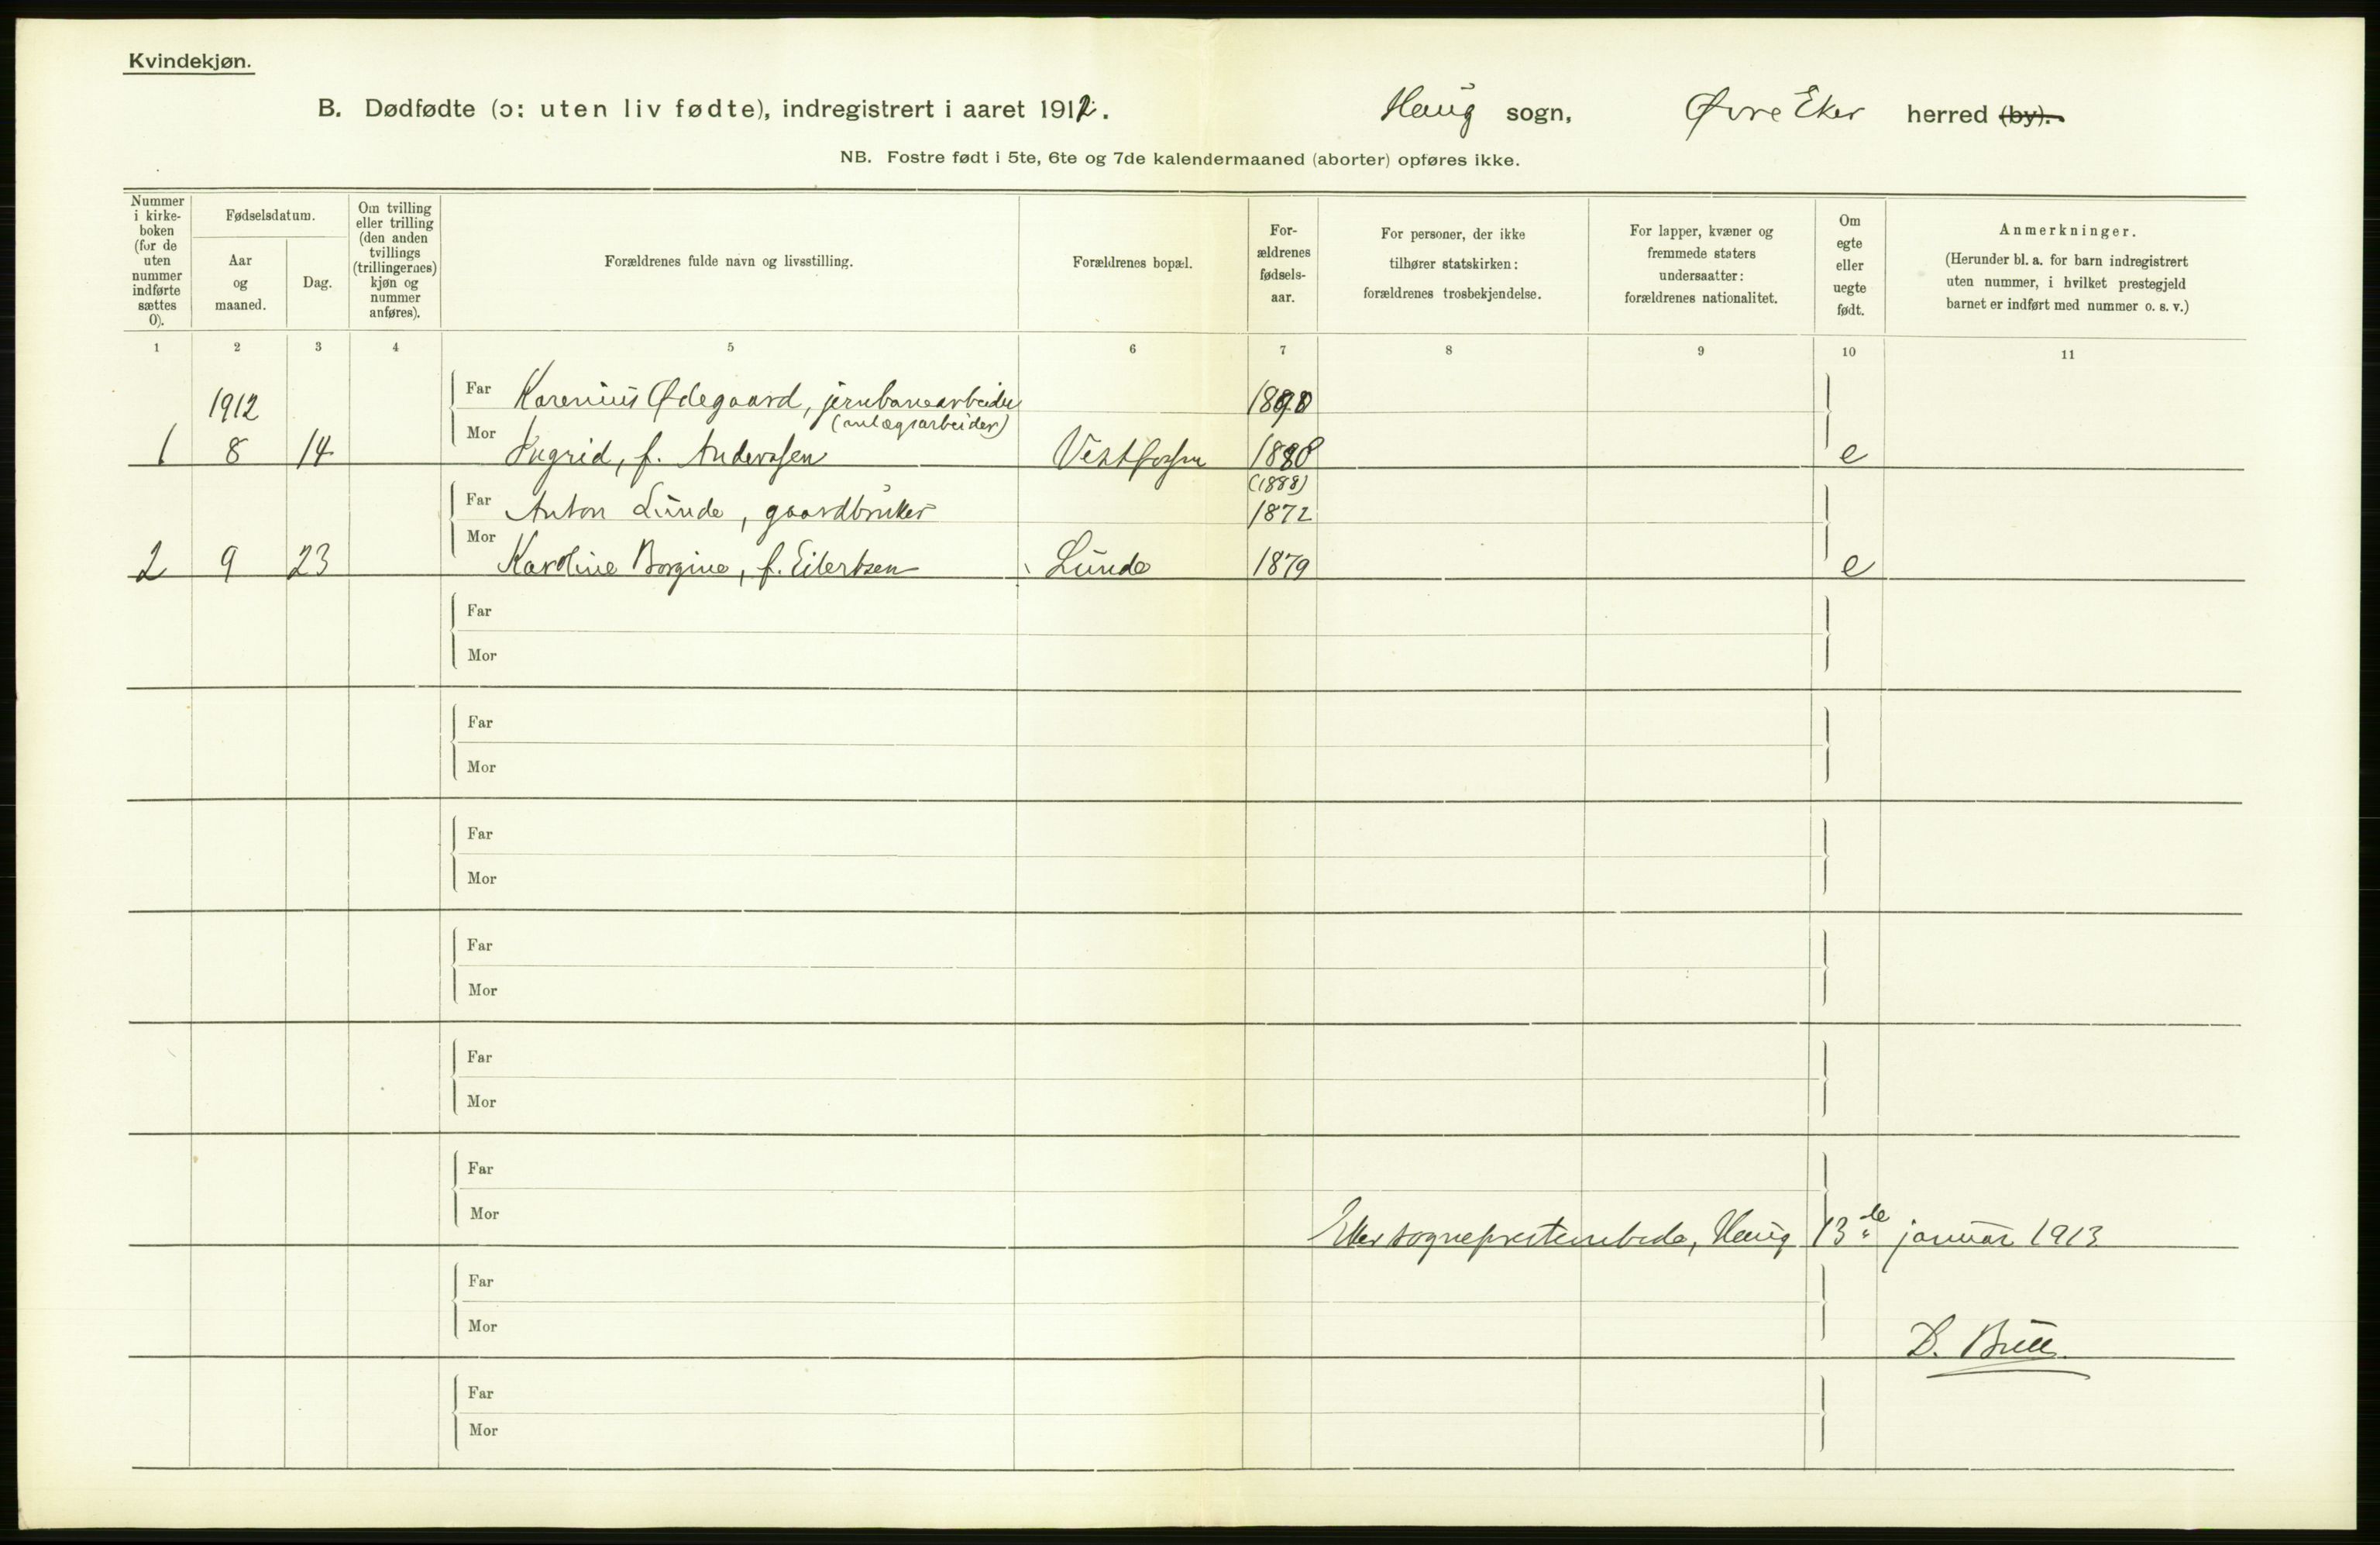 Kvindekjøn.
B. Dødfødte (ɔ: uten liv fødte), indregistrert i aaret 1912.
Haug sogn, Øvre Eker herred (by).
NB. Fostre født i 5te, 6te og 7de kalendermaaned (aborter) opføres ikke.
Nummer
i kirke-
boken
(for de
uten
nummer
indførte
sættes
0).
Fødselsdatum.
Aar
og
maaned.
Dag.
Om tvilling
eller trilling
(den anden
tvillings
(trillingernes)
kjøn og
nummer
anføres).
Forældrenes fulde navn og livsstilling.
Forældrenes bopæl.
For-
ældrenes
fødsels-
aar.
For personer, der ikke
tilhører statskirken:
forældrenes trosbekjendelse.
For lapper, kvæner og
fremmede staters
undersaatter:
forældrenes nationalitet.
Om
egte
eller
uegte
født.
Anmerkninger.
(Herunder bl. a. for barn indregistrert
uten nummer, i hvilket prestegjeld
barnet er indført med nummer o. s. v.)
1 2 3 4 5 6 7 8 9 10 11
1912
Far Karenius Ødegaard, jernbanearbeider
(anlægsarbeider)
1 8 14 Mor Ingrid, f. Anderssen Vestfossen e
(1888)
Far Anton Lunde, gaardbruker 1872
2 9 23 Mor Karoline Borgine, f. Eilertsen Lunde 1879 e
Far
Mor
Far
Mor
Far
Mor
Far
Mor
Far
Mor
Far
Mor
Eker sogneprestembede, Haug 13de januar 1913
Far
Mor
D. Bull
Far
Mor